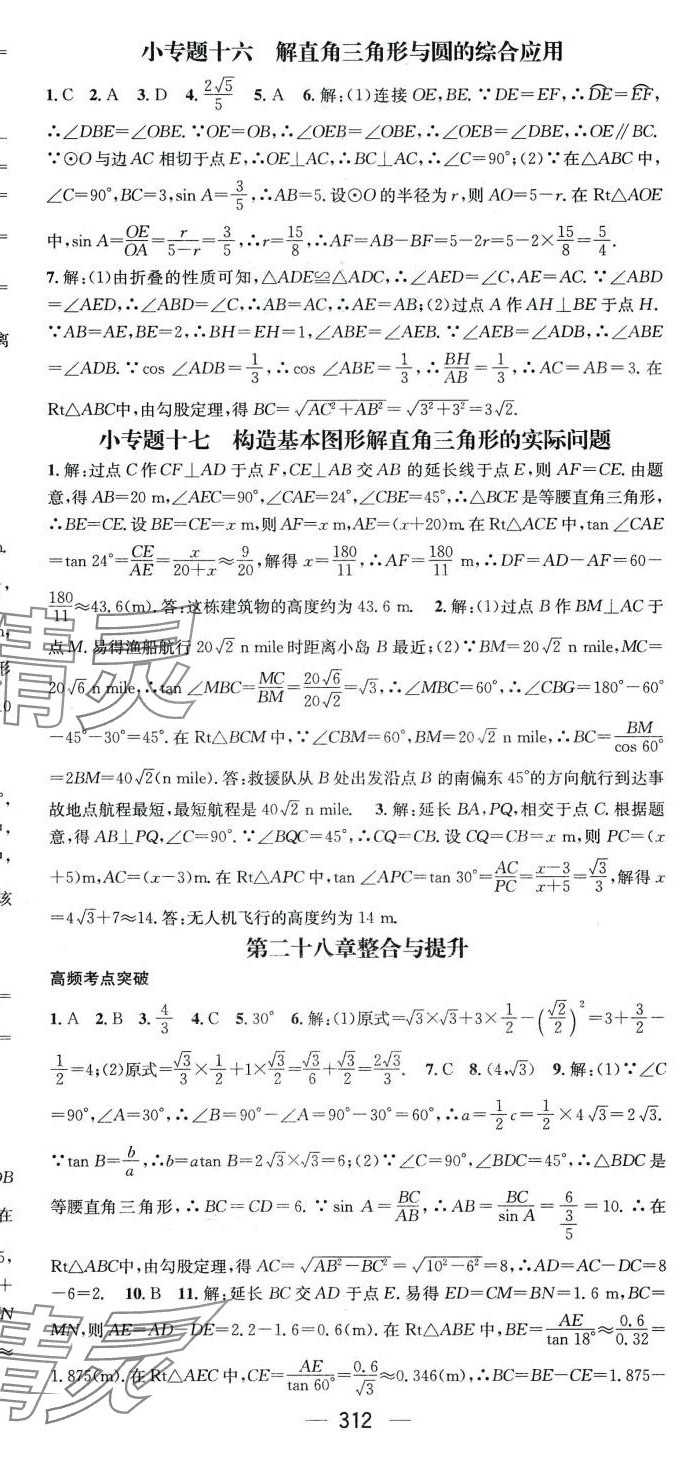 小专题十六　解直角三角形与圆的综合应用
1. C 2. A 3. D 4. 2√5/5 5. A 6. 解:(1)连接 OE,BE. ∵DE=EF,∴D͡E=E͡F,
∴∠DBE=∠OBE. ∵OE=OB,∴∠OEB=∠OBE,∴∠OEB=∠DBE,∴OE∥BC.
∵⊙O与边 AC 相切于点 E,∴OE⊥AC,∴BC⊥AC,∴∠C=90°;(2)∵在△ABC 中,
∠C=90°,BC=3,sin A=3/5,∴AB=5. 设⊙O 的半径为 r,则 AO=5-r. 在 Rt△AOE
中,sin A=OE/OA=r/(5-r)=3/5,∴r=15/8,∴AF=AB-BF=5-2r=5-2×15/8=5/4.
7. 解:(1)由折叠的性质可知,△ADE≌△ADC,∴∠AED=∠C,AE=AC. ∵∠ABD
=∠AED,∴∠ABD=∠C,∴AB=AC,∴AE=AB;(2)过点 A 作 AH⊥BE 于点 H.
∵AB=AE,BE=2,∴BH=EH=1,∠ABE=∠AEB. ∵∠AEB=∠ADB,∴∠ABE
=∠ADB. ∵cos ∠ADB=1/3,∴cos ∠ABE=1/3,∴BH/AB=1/3,∴AC=AB=3. 在
Rt△ABC中,由勾股定理,得 BC=√(AC²+AB²)=√(3²+3²)=3√2.
小专题十七　构造基本图形解直角三角形的实际问题
1. 解:过点 C 作 CF⊥AD 于点 F,CE⊥AB 交 AB 的延长线于点 E,则 AF=CE. 由题
意,得 AB=20 m,∠AEC=90°,∠CAE=24°,∠CBE=45°,∴△BCE 是等腰直角三角形,
∴BE=CE. 设 BE=CE=x m,则 AF=x m,AE=(x+20)m. 在 Rt△ACE 中,tan ∠CAE
=tan 24°=CE/AE=x/(20+x)≈9/20,解得 x=180/11,∴AF=180/11 m,∴DF=AD-AF=60-
180/11≈43.6(m). 答:这栋建筑物的高度约为 43.6 m. 2. 解:(1)过点 B 作 BM⊥AC 于
点 M. 易得渔船航行 20√2 n mile 时距离小岛 B 最近;(2)∵BM=20√2 n mile,MC=
20√6 n mile,∴tan ∠MBC=MC/BM=20√6/20√2=√3,∴∠MBC=60°,∴∠CBG=180°-60°
-45°-30°=45°. 在 Rt△BCM 中,∵∠CBM=60°,BM=20√2 n mile,∴BC=BM/cos 60°
=2BM=40√2(n mile). 答:救援队从 B 处出发沿点 B 的南偏东 45°的方向航行到达事
故地点航程最短,最短航程是 40√2 n mile. 3. 解:延长 BA,PQ,相交于点 C. 根据题
意,得 AB⊥PQ,∠C=90°. ∵∠BQC=45°,∴CQ=CB. 设 CQ=CB=x m,则 PC=(x
+5)m,AC=(x-3)m. 在 Rt△APC 中,tan ∠APC=tan 30°=AC/PC=(x-3)/(x+5)=√3/3,解得 x
=4√3+7≈14. 答:无人机飞行的高度约为 14 m.
第二十八章整合与提升
高频考点突破
1. A 2. B 3. 4/3 4. C 5. 30° 6. 解:(1)原式=√3×√3+3×1/2-(√2/2)²=3+3/2-
1/2=4;(2)原式=√3/3×1/2+1×√3/2=√3/6+√3/2=2√3/3. 7. C 8. (4,√3) 9. 解:(1)∵∠C
=90°,∠A=30°,∴∠B=90°-∠A=90°-30°=60°,∴a=1/2c=1/2×4√3=2√3.
∵tan B=b/a,∴b=atan B=2√3×√3=6;(2)∵∠C=90°,∠BDC=45°,∴△BDC 是
等腰直角三角形,∴BC=CD=6. ∵sin A=BC/AB,∴AB=BC/sin A=6/(3/5)=10. ∴在
Rt△ABC中,由勾股定理,得 AC=√(AB²-BC²)=√(10²-6²)=8,∴AD=AC-DC=8
-6=2. 10. B 11. 解:延长 BC 交 AD 于点 E. 易得 ED=CM=BN=1.6 m,BC=
MN,则 AE=AD-DE=2.2-1.6=0.6(m). 在 Rt△ABE 中,BE=AE/tan 18°≈0.6/0.32=
1.875(m). 在 Rt△AEC 中,CE=AE/tan 60°=0.6/√3≈0.346(m),∴BC=BE-CE=1.875-
— 312 —